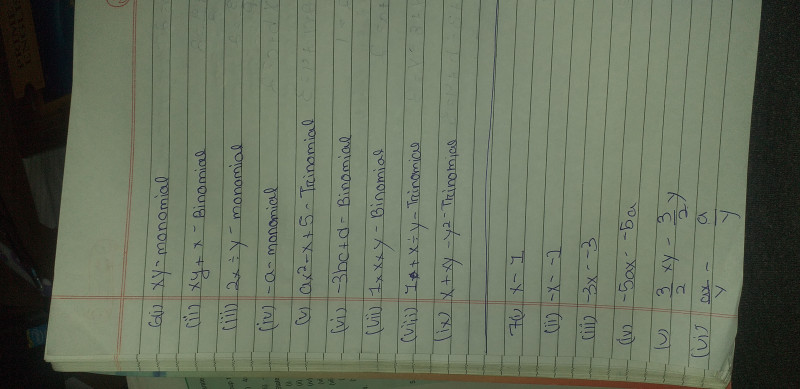 6(i) xy - monomial
(ii) xy + x - Binomial
(iii) 2x ÷ y - monomial
(iv) -a - monomial
(v) ax² - x + 5 - Trinomial
(vi) -3bc + d - Binomial
(vii) 1 + x × y - Binomial
(viii) 1 + x ÷ y - Trinomial
(ix) x + xy - y² - Trinomial
7(i) x - 1
(ii) -x - -1
(iii) -3x - -3
(iv) -5ax - -5a
(v) 3/2 xy - 3/2 y
(vi) ax/y - a/y